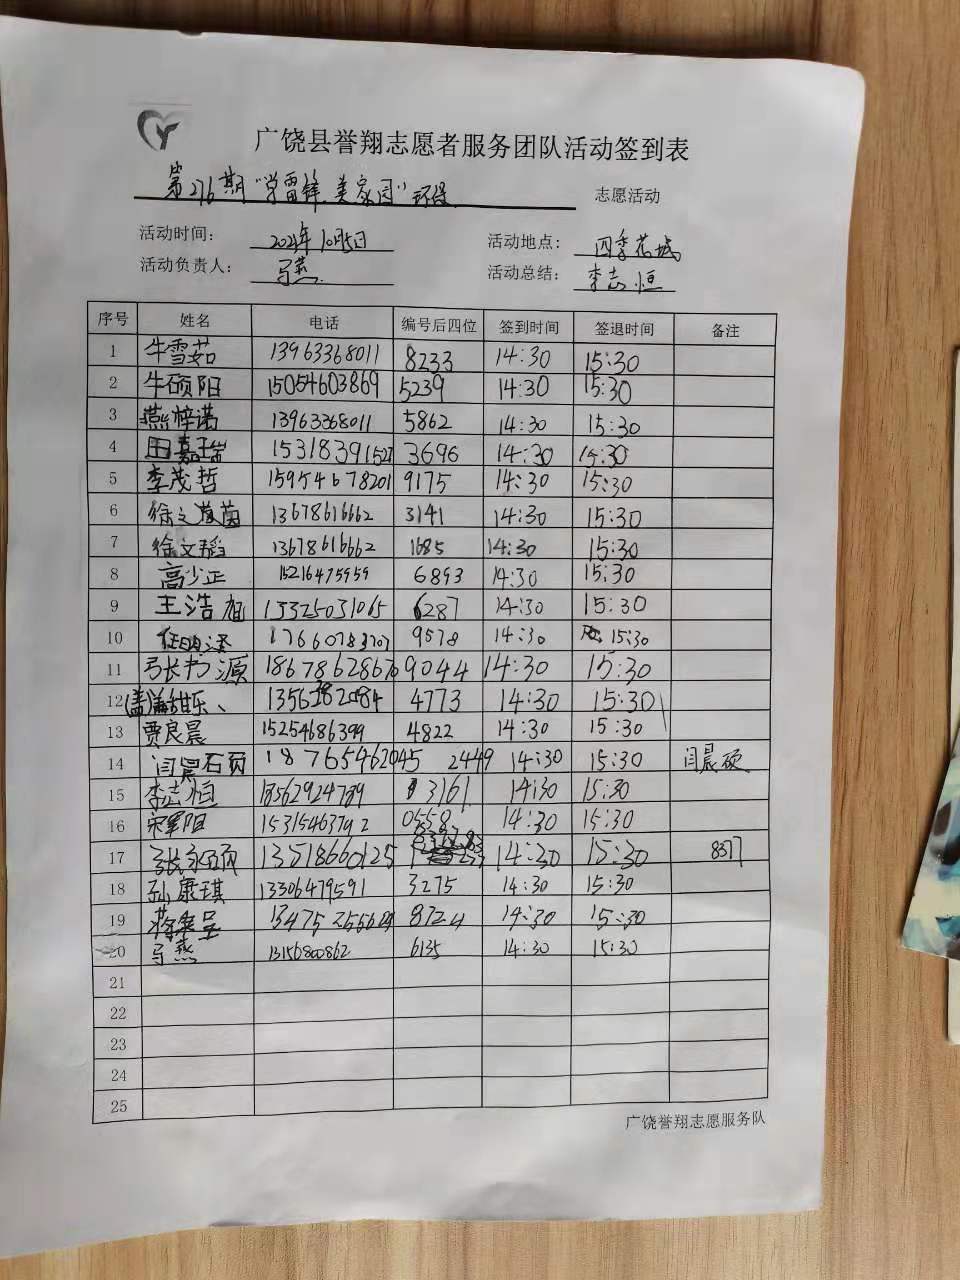 广饶县誉翔志愿者服务团队活动签到表
第276期“学雷锋 美家园”环保 志愿活动
活动时间： 2021年10月5日 活动地点： 四季花城
活动负责人： 马燕 活动总结： 李志恒
序号 姓名 电话 编号后四位 签到时间 签退时间 备注
1 牛雪茹 13963368011 8233 14:30 15:30
2 牛硕阳 15054603869 5239 14:30 15:30
3 燕梓诺 13963368011 5862 14:30 15:30
4 田嘉瑞 15318391527 3696 14:30 15:30
5 李茂哲 15954678201 9175 14:30 15:30
6 徐文茵 13678616662 3141 14:30 15:30
7 徐文韬 13678616662 1685 14:30 15:30
8 高少正 15216475959 6893 14:30 15:30
9 王浩旭 15325031065 6287 14:30 15:30
10 17660783707 9578 14:30 15:30
11 张书源 18678628670 9044 14:30 15:30
12 4773 14:30 15:30
13 贾良晨 15254686399 4822 14:30 15:30
14 闫晨硕 18765462045 2449 14:30 15:30 闫晨硕
15 李志恒 18562924789 3161 14:30 15:30
16 15315463792 0558 14:30 15:30
17 13518660125 14:30 15:30 8377
18 孙康琪 13306479591 3275 14:30 15:30
19 8724 14:30 15:30
20 马燕 13156800862 6135 14:30 15:30
21
22
23
24
25
广饶誉翔志愿服务队